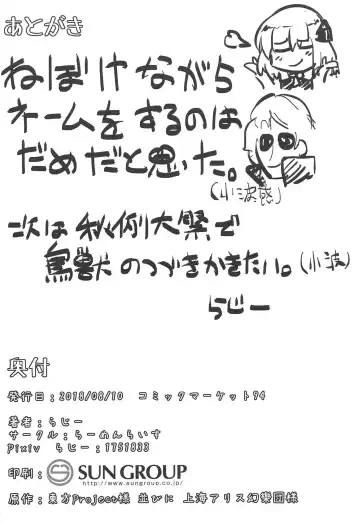 あとがき
ねぼけながら
ネームをするのは
だめだと思いた。
(小波感)
次は秋例大祭で
鳥獣のつづきかきたい。(小波)
らじー
奥付
発行日:2018/08/10 コミックマーケット94
著者:らじー
サークル:らーめんらいす
Pixiv らじー:1751833
印刷: SUN GROUP
http://www.sungroup.co.jp/
原作:東方Project様 並びに 上海アリス幻樂団様